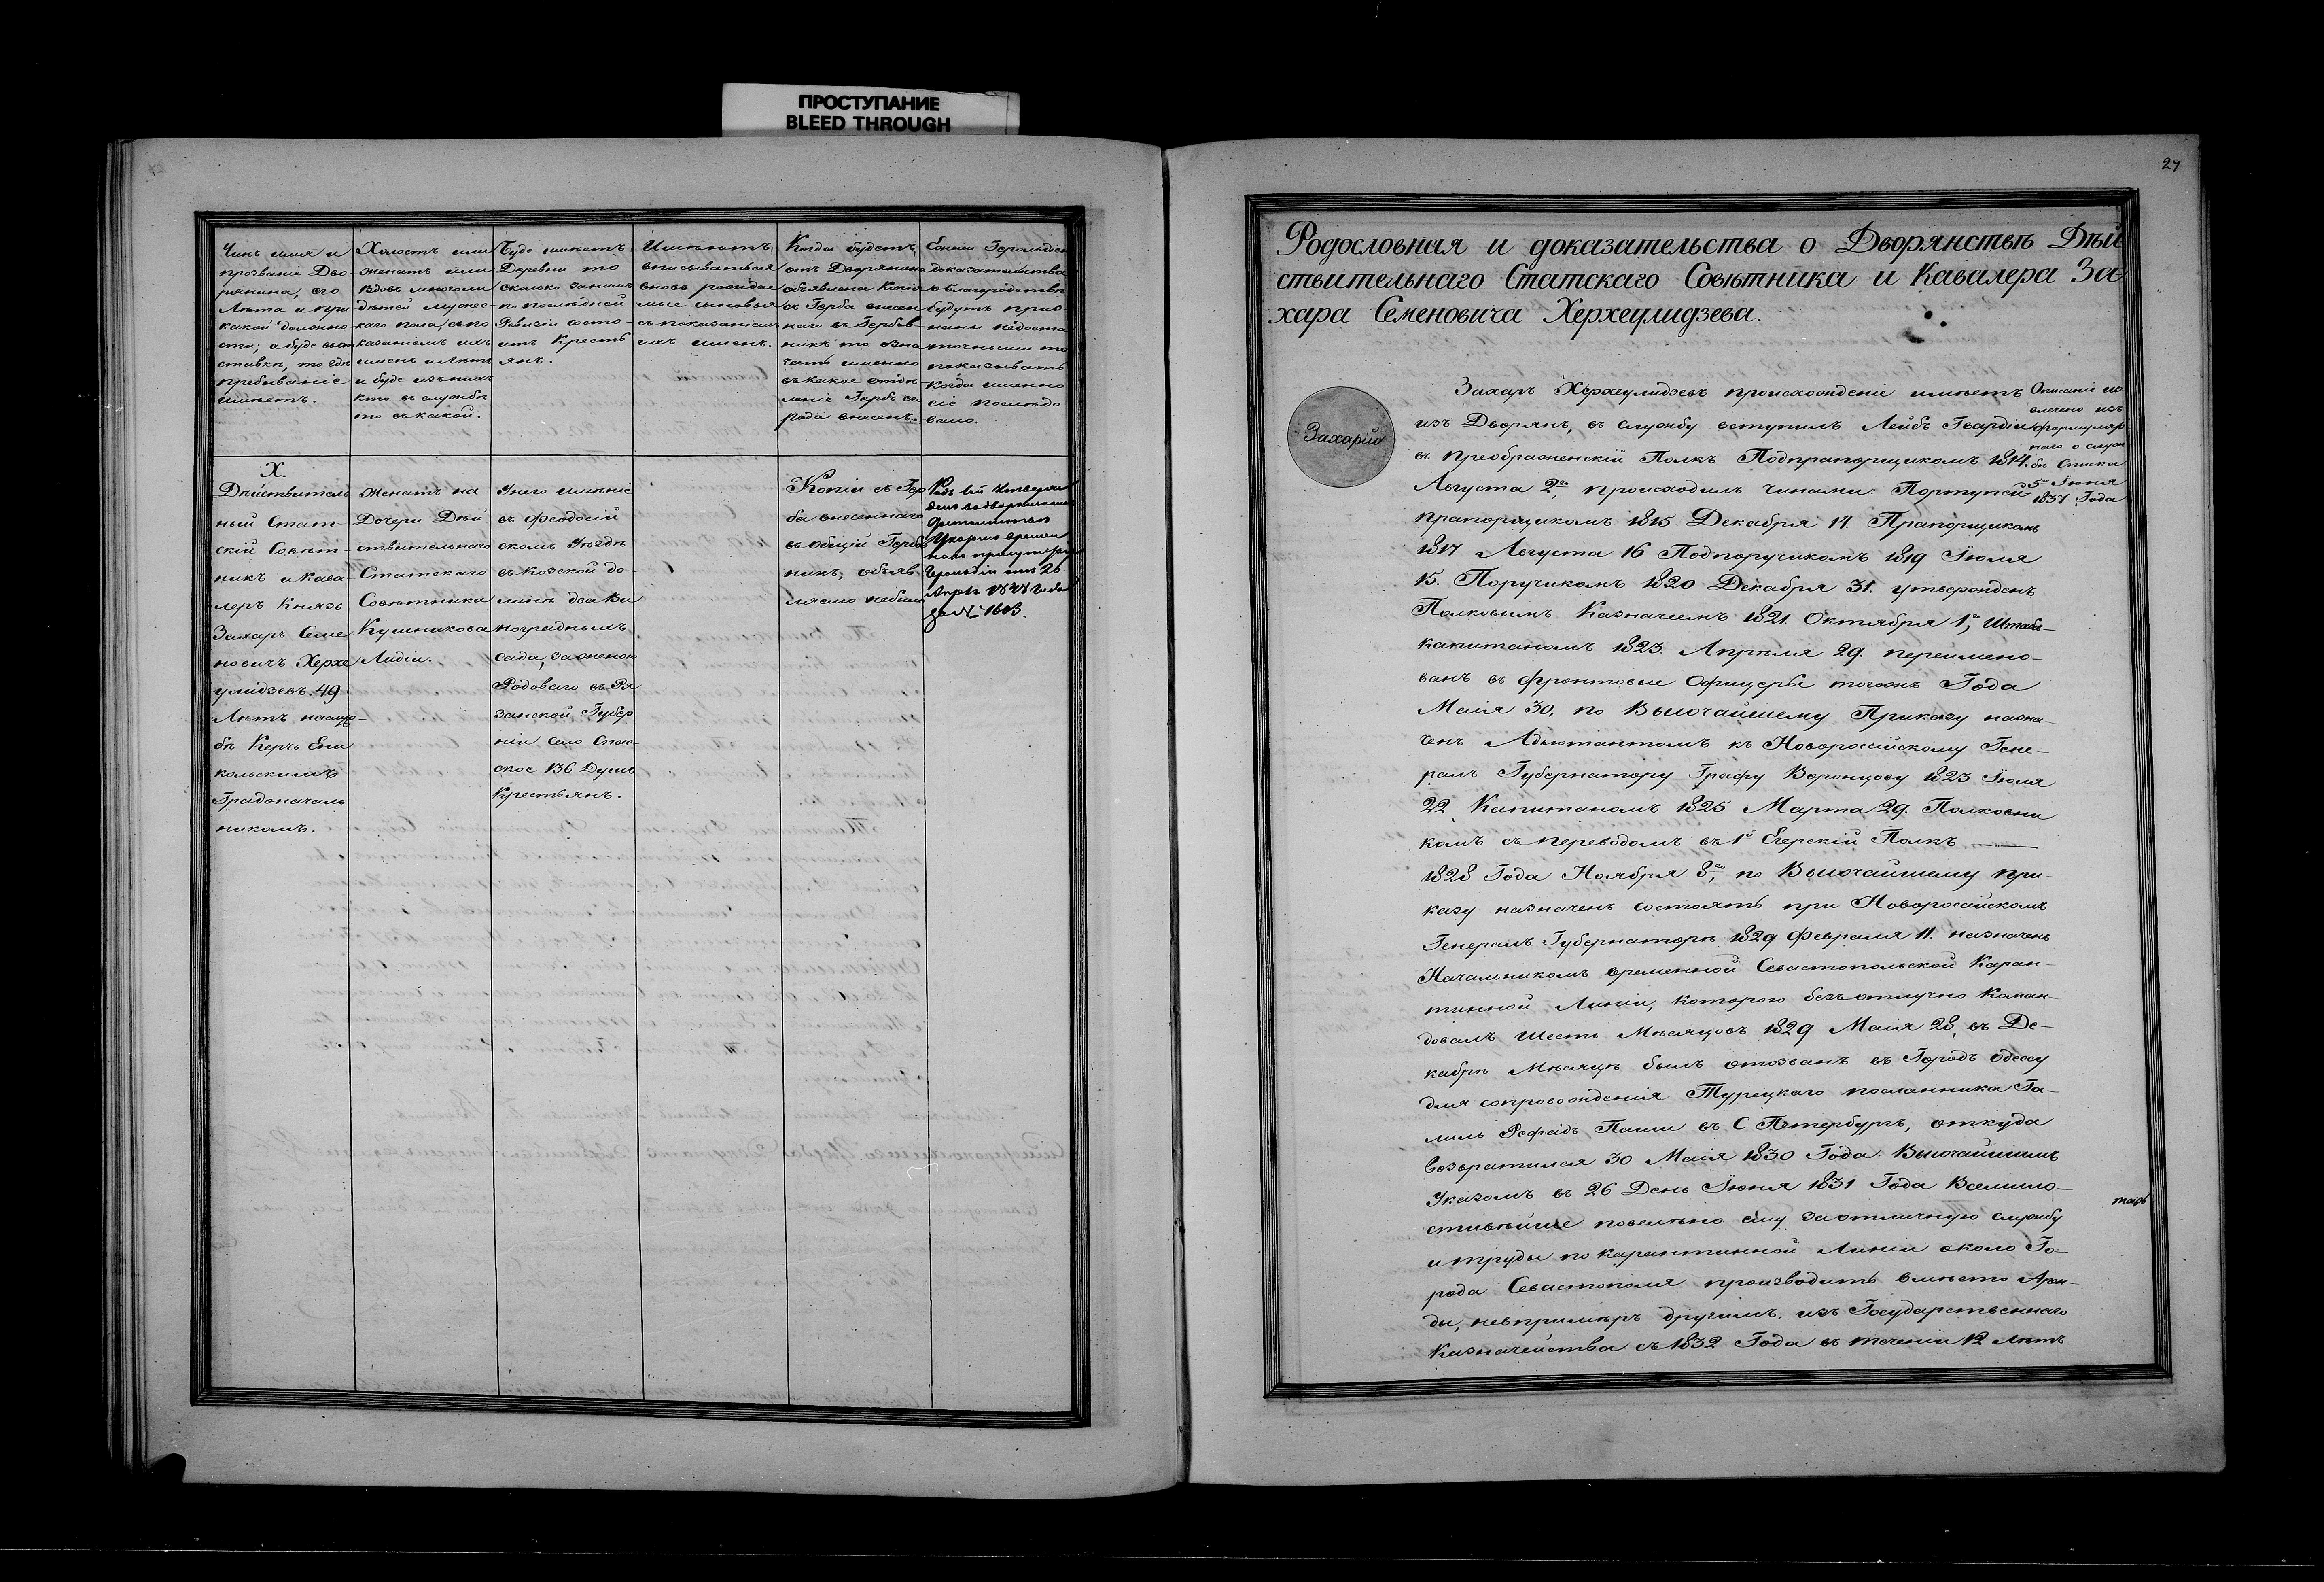 ПРОСТУПАНИЕ
BLEED THROUGH
Чинъ имя и
прозваніе Дво-
рянина, его
Лѣта и при
какой должно-
сти; а буде въ от
ставкѣ, то гдѣ
пребываніе
имѣетъ.
Холостъ или
женатъ или
вдовъ, многоли
дѣтей мужес-
каго пола, съ по
казаніемъ ихъ
именъ и Лѣтъ
и буде изъ нихъ
кто въ службѣ
то въ какой.
Буде имѣетъ
Деревни то
сколько занимъ
по послѣдней
Ревизіи состо-
итъ Кресть
янъ.
Имѣютъ
вписываться
вновь раждае
мые сыновья
съ показаніемъ
ихъ именъ.
Когда будетъ
отъ Дворянина
объявлена Копія
съ Герба внесен
наго въ Гербов-
никъ то озна
чать именно
въ какое отдѣ
леніе Гербъ его
рода внесенъ.
Герольдіею
доказательства
о благородствѣ
будутъ приз-
наны недоста
точными то
показывать
когда именно
сіе послѣдо
вало.
Х.
Дѣйствитель
ный Стат-
скій Совѣт-
никъ и Кава
леръ Князь
Захаръ Семе
новичъ Херхе
улидзевъ. 49
Лѣтъ на служ-
бѣ Керчь Ени
кольскимъ
Градоначаль
никомъ.
Женатъ на
Дочери Дѣй
ствительнаго
Статскаго
Совѣтника
Кушникова
Лидіи.
У него имѣніе
въ Феодосій
скомъ Уѣздѣ
въ Козской до-
линѣ два Ви
ноградныхъ
сада, за женою
Родоваго въ Ря
занской Губер
ніи село Спас-
ское 136 Душъ
Крестьянъ.
Копіи съ Гер
ба внесеннаго
въ общій Гербов
никъ, объяв-
ляемо небыло
Родъ сей утверж
денъ въ дворянскомъ
достоинствѣ
Указомъ времен
наго присутствія
Герольдіи отъ 20
за № 1603.
27
Родословная и доказательства о Дворянствѣ Дѣй
ствительнаго Статскаго Совѣтника и Кавалера За-
хара Семеновича Херхеулидзева.
Захарій
Описаніе из
влечено изъ
формуляр
наго о служ-
бѣ Списка
5го Іюня
1837 Года
Захаръ Херхеулидзевъ происхожденіе имѣетъ
изъ Дворянъ, въ службу вступилъ Лейбъ-Гвардіи
въ Преображенскій Полкъ Подпрапорщикомъ 1814.
Августа 2го, происходилъ чинами: Портупей
прапорщикомъ 1815 Декабря 14. Прапорщикомъ
1817 Августа 16 Подпоручикомъ 1819 Іюля
15. Поручикомъ 1820 Декабря 31. утвержденъ
Полковымъ Казначеемъ 1821 Октября 1го, Штабъ-
капитаномъ 1823 Апрѣля 29. переимено-
ванъ въ фронтовые Офицеры тогожъ Года
Маія 30, по Высочайшему Приказу назна-
ченъ Адъютантомъ къ Новоросійскому Гене-
ралъ Губернатору Графу Воронцову 1823 Іюля
22, Капитаномъ 1825 Марта 29. Полковни
комъ съ переводомъ въ 1й Егерскій Полкъ
1828 Года Ноября 8го, по Высочайшему при-
казу назначенъ состоять при Новоросійскомъ
Генералъ Губернаторѣ 1829 Февраля 11. назначенъ
Начальникомъ временной Севастопольской Каран-
тинной Линіи, которою безъотлучно Коман-
довалъ шесть Мѣсяцовъ 1829 Маія 28, въ Де-
кабрѣ Мѣсяцѣ былъ отозванъ въ Городъ Одессу
для сопровожденія Турецкаго посланника Га-
лиль Рефадъ Паши въ С Петербургъ, откуда
возвратился 30 Маія 1830 Года. Высочайшимъ
Указомъ въ 26 День Іюня 1831 Года Всемило-
стивѣйше повелѣно ему за отличную службу
и труды по карантинной Линіи около Го-
рода Севастополя производить вмѣсто Арен-
ды, невпримѣръ другимъ, изъ Государственнаго
Казначейства съ 1832 Года въ теченіи 12 лѣтъ